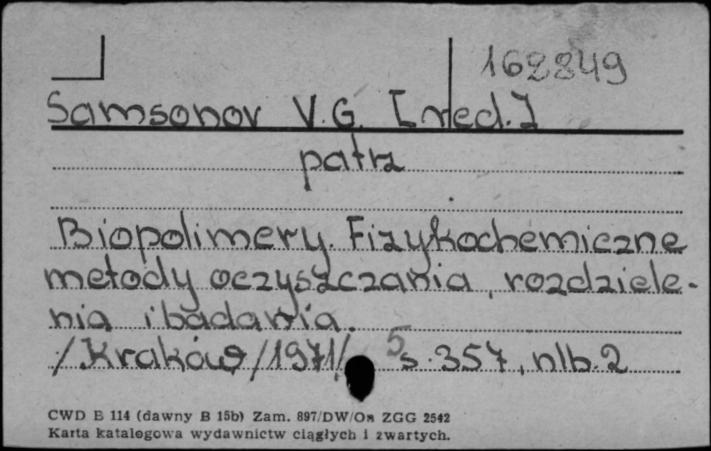 162849
Samsonov V.G. [red.]
patrz
Biopolimery. Fizykochemiczne
metody oczyszczania, rozdziele-
nia i badania.
/Kraków/1971/ s. 357, nlb. 2
CWD B 114 (dawny B 15b) Zam. 897/DW/Oa ZGG 2542
Karta katalogowa wydawnictw ciągłych i zwartych.